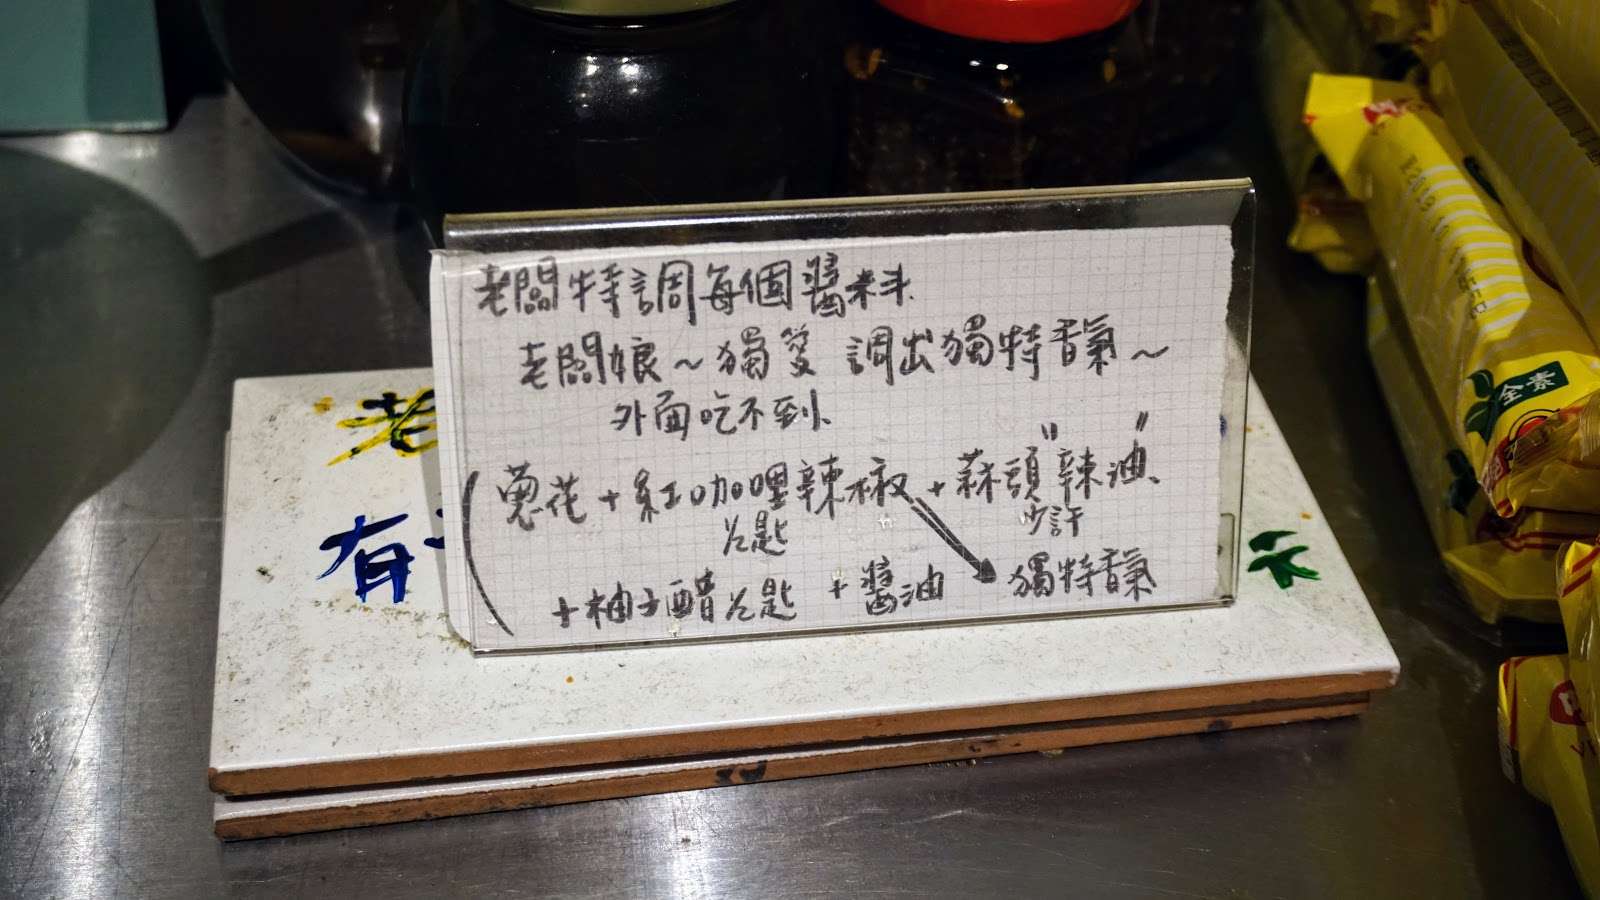 老闆特調每個醬料
老闆娘～獨愛 調出獨特香氣～
外面吃不到
(蔥花+紅咖哩辣椒+蒜頭"辣油"、
匙 少許
+柚子醋 匙 +醬油 獨特香氣
老
有
全素